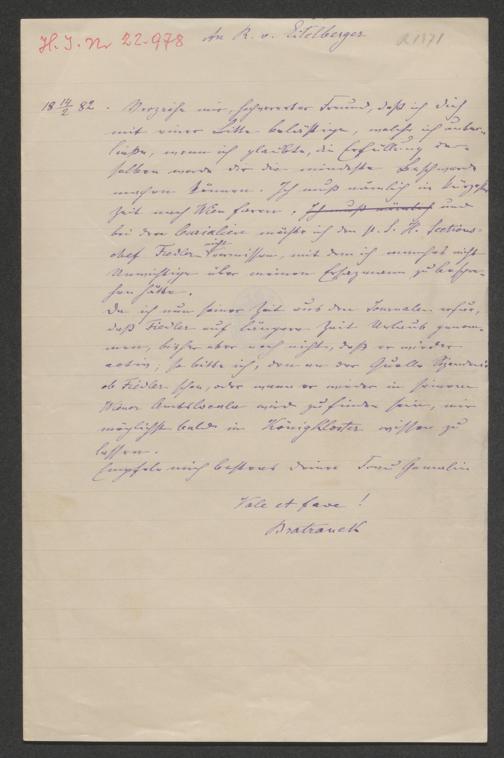 H. I. Nr 22.978
An R. v. Eitelberger
A 1371
18 14/2 82. Verzeihe mir, hochverehrter Freund, daß ich Dich
mit einer Bitte belästige, welche ich unter-
ließe, wenn ich glaubte, die Erfüllung der-
selben werde dir die mindeste Beschwerde
machen können. Ich muß nämlich in kürzester
Zeit nach Wien fahren, Ich muß nämlich und
bei den möchte ich den H. Sections-
chef Fiedler nicht vermissen, mit dem ich manches nicht
Unwichtige über meinen Ersatzmann zu bespre-
chen hätte.
Da ich nun seiner Zeit aus den Journalen erfuhr,
daß Fiedler auf längere Zeit Urlaub genom-
men, bisher aber noch nicht, daß er wieder
activ, so bitte ich, den an der Quelle Sitzenden
ob Fiedler schon, oder wann er wieder in seinem
Wiener Amtslocale wird zu finden sein, mir
möglichst bald in Königskloster wissen zu
lassen.
Empfehle mich bestens deiner Frau Gemalin
Vale et fave!
Bratranek